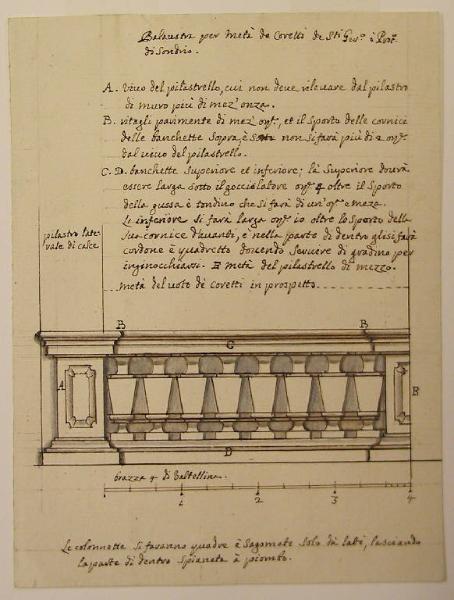 Balaustra per metà de Coretti de Sti Ger.o è Prot.o
di Sondrio.
A. Vivo del pilastrello, cui non deve rilevare dal pilastro
di muro più di mez' onza.
B. pavimente di mez onz.a, et il sporto delle cornici
delle banchette sopra, è non si farà più di 2 onz.e
dal vivo del pilastrello.
C. D. banchette superiore et inferiore; la superiore dovrà
essere larga sotto il gocciolatore onz.e 4 oltre il sporto
della gussa è tondino che si farà di un' onz.a e meza.
Le inferiore si farà larga onz.e 10 oltre lo sporto della
sua cornice d'avanti, è nella parte di dentro gli si farà
cordone è quadretto dovendo servire di gradino per
inginocchiarsi. E metà del pilastrello di mezzo.
metà del vote dè Coretti in prospetto
pilastro late-
rale di
B
B
C
A
E
D
brazza 4 di Valtellina.
1 2 3 4
Le colonnette si faranno quadre è sagomate solo dà lati, lasciando
la parte di dentro spianata à piombo.